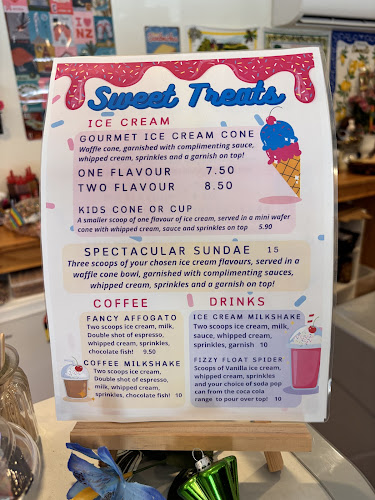 I
NZ
Sweet Treats
ICE CREAM
GOURMET ICE CREAM CONE
Waffle cone, garnished with complimenting sauce,
whipped cream, sprinkles and a garnish on top!
ONE FLAVOUR 7.50
TWO FLAVOUR 8.50
KIDS CONE OR CUP
A smaller scoop of one flavour of ice cream, served in a mini wafer
cone with whipped cream, sauce and sprinkles on top 5.90
SPECTACULAR SUNDAE 15
Three scoops of your chosen ice cream flavours, served in a
waffle cone bowl, garnished with complimenting sauces,
whipped cream, sprinkles and a garnish on top!
COFFEE
FANCY AFFOGATO
Two scoops ice cream, milk,
Double shot of espresso,
whipped cream, sprinkles,
chocolate fish! 9.50
COFFEE MILKSHAKE
Two scoops ice cream,
Double shot of espresso,
milk, whipped cream,
sprinkles, chocolate fish! 10
DRINKS
ICE CREAM MILKSHAKE
Two scoops ice cream, milk,
sauce, whipped cream,
sprinkles, garnish 10
FIZZY FLOAT SPIDER
Scoops of Vanilla ice cream,
whipped cream, sprinkles
and your choice of soda pop
can from the coca cola
range to pour over top! 10